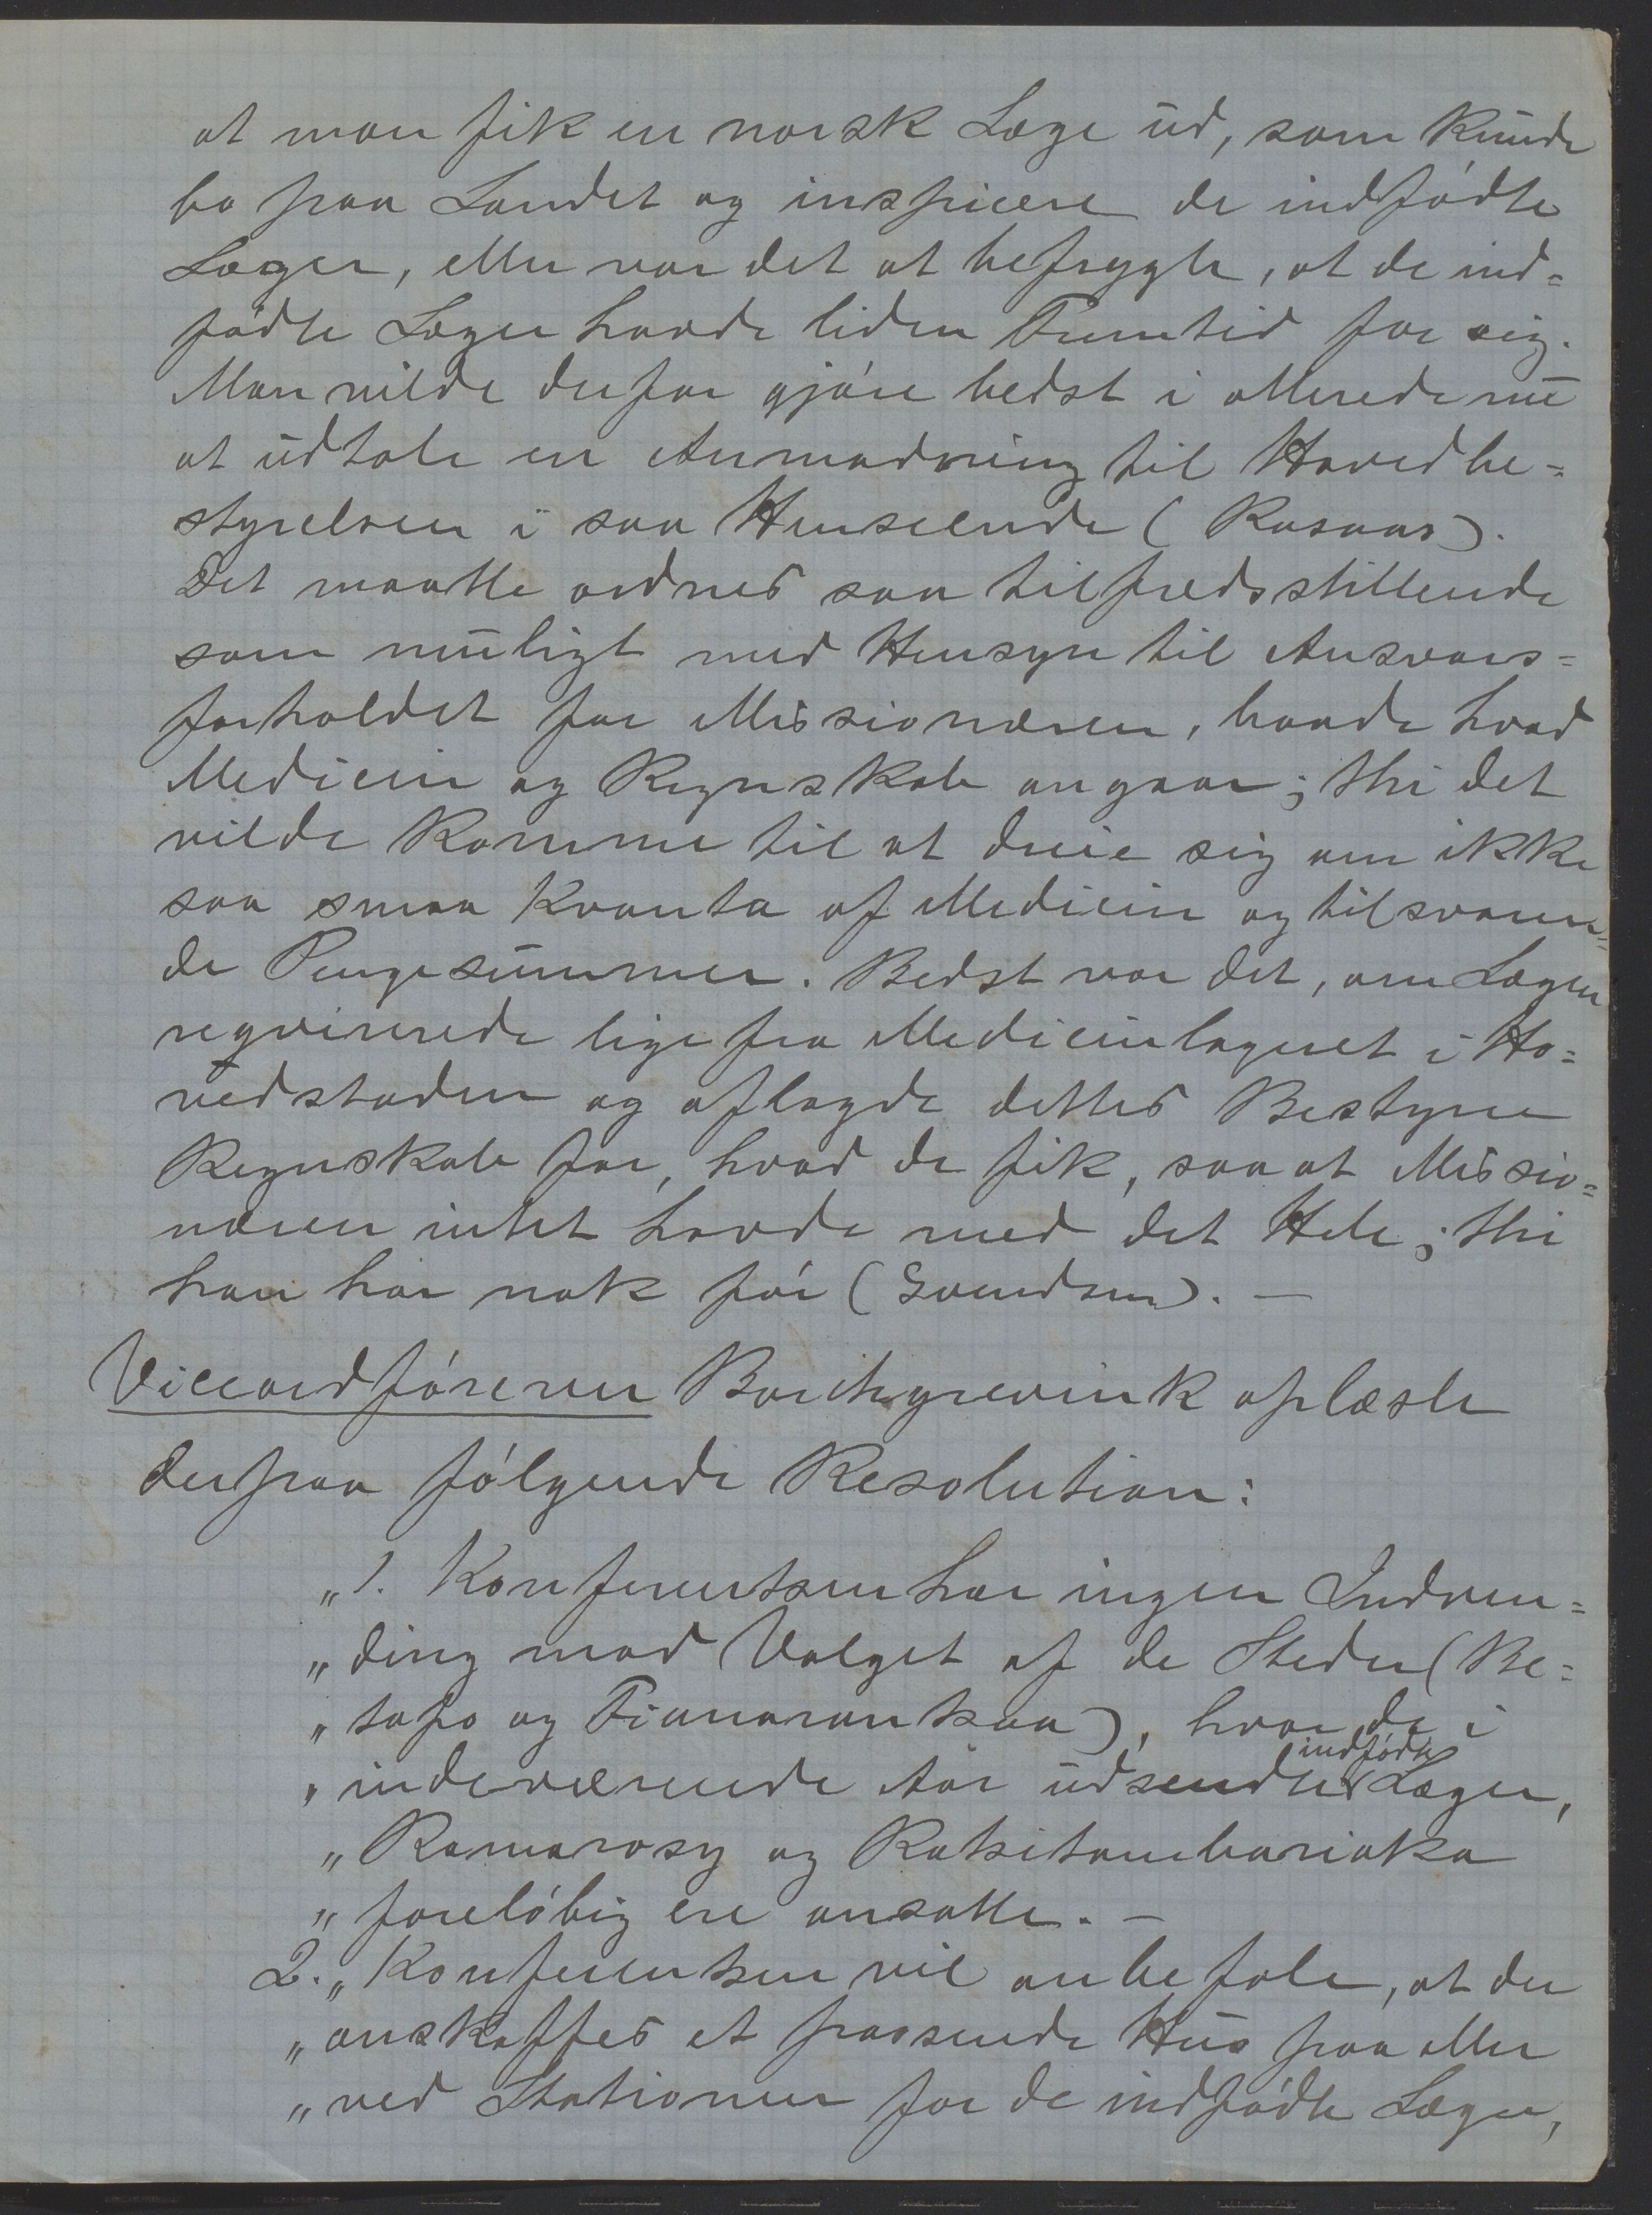 at man fik en norsk Læge ud, som kunde
bo paa Landet og inspicere de indfødte
Læger, eller var det at befrygte, at de ind=
fødte Læger havde liden Fremtid for sig.
Man vilde derfor gjøre bedst i allerede nu
at udtale en Anmodning til Hovedbe=
styrelsen i saa Henseende (Rosaas).
Det maatte ordnes saa tilfredsstillende
som muligt med Hensyn til Ansvars=
forholdet for Missionæren, baade hvad
Medicin og Regnskab angaar; thi det
vilde komme til at dreie sig om ikke
saa smaa Kvanta af Medicin og tilsvaren=
de Pengesummer. Bedst var det, om Lægen
reqvirerede lige fra Medicinlageret i Ho=
vedstaden og aflagde dettes Bestyrer
Regnskab for, hvad de fik, saa at Missio=
næren intet havde med det Hele; thi
han har nok før (Svendsen). —
Viceordføreren Borchgrevink oplæste
derpaa følgende Resolution:
„1. Konferentsen har ingen Indven=
„ding mod Valget af de Steder (Be=
„tafo og Fianarantsoa), hvor de i
indfødte
„indeværende Aar udsendte Læger,
„Ramarosy og Rakitambariaka
„foreløbig ere ansatte. —
2. „Konferentsen vil anbefale, at der
„anskaffes et passende Hus paa eller
„ved Stationen for de indfødte Læger,